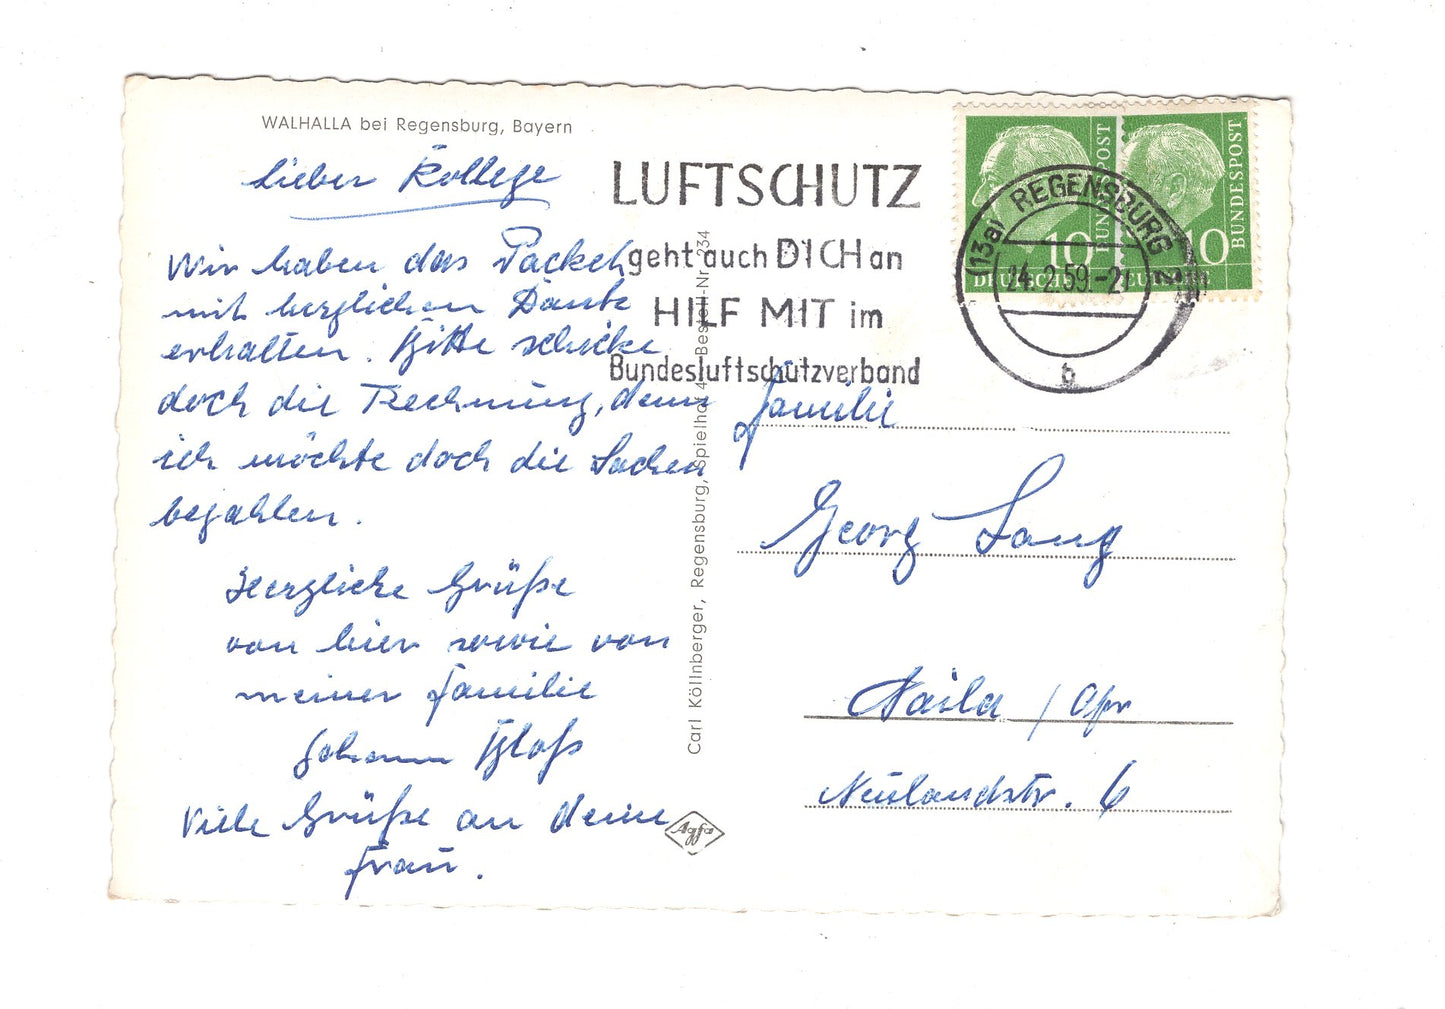 WALHALLA bei Regensburg, Bayern
Lieber Kollege
Wir haben das Packerl
mit herzlichen Dank
erhalten. Bitte schicke
doch die Rechnung, denn
ich möchte doch die Sachen
bezahlen.
Herzliche Grüße
von hier sowie von
meiner Familie
Johann Bloß
Viele Grüße an deine
Frau.
Carl Köllnberger, Regensburg, Spielhof 4 Bestell-Nr. 234
Agfa
LUFTSCHUTZ
geht auch DICH an
HILF MIT im
Bundesluftschutzverband
10
DEUTSCHE
BUNDESPOST
10
DEUTSCHE
BUNDESPOST
(13a) REGENSBURG 2
24.2.59.-21
b
Familie
Georg Lang
Naila / Ofr
Neulandstr. 6